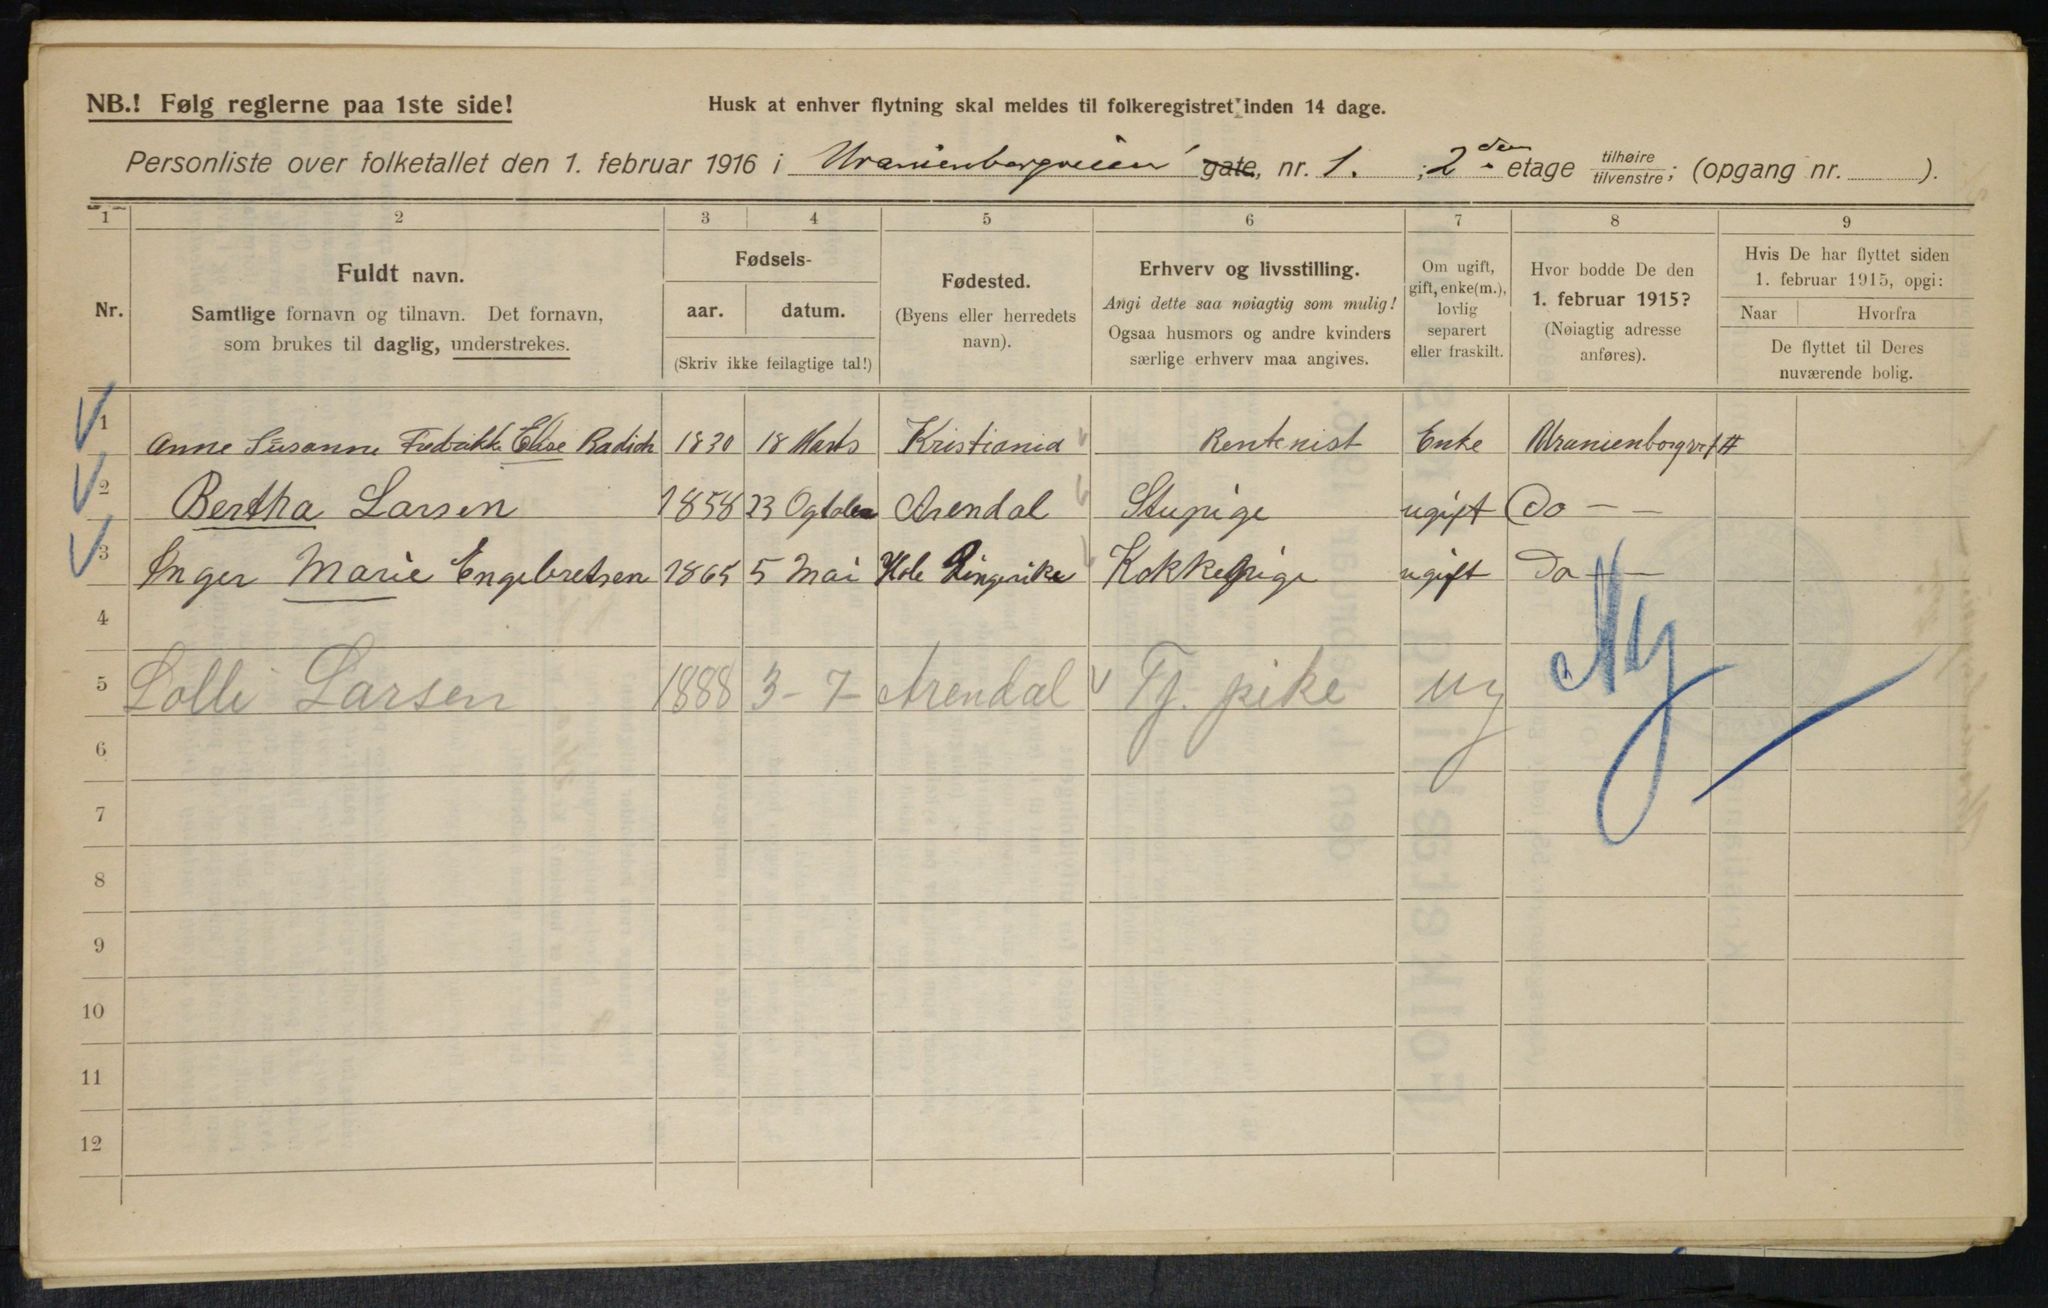 NB.! Følg reglerne paa 1ste side!
Husk at enhver flytning skal meldes til folkeregistret inden 14 dage.
Personliste over folketallet den 1. februar 1916 i Uranienborgveien gate, nr. 1. ; 2den etage tilhøire tilvenstre; (opgang nr. ).
1 2 3 4 5 6 7 8 9
Nr.
Fuldt navn.
Samtlige fornavn og tilnavn. Det fornavn,
som brukes til daglig, understrekes.
Fødsels-
aar. datum.
(Skriv ikke feilagtige tal!)
Fødested.
(Byens eller herredets
navn).
Erhverv og livsstilling.
Angi dette saa nøiagtig som mulig!
Ogsaa husmors og andre kvinders
særlige erhverv maa angives.
Om ugift,
gift, enke(m.),
lovlig
separert
eller fraskilt.
Hvor bodde De den
1. februar 1915?
(Nøiagtig adresse
anføres).
Hvis De har flyttet siden
1. februar 1915, opgi:
Naar Hvorfra
De flyttet til Deres
nuværende bolig.
1 Anne Susanne Fredrikke Elise Radich 1830 18 Marts Kristiania Rentenist Enke Uranienborgv
2 Bertha Larsen 1858 23 Ogtober Arendal Stupige ugift Do — —
3 Inger Marie Engebretsen 1865 5 Mai Hole Ringerike Kokkepige ugift Do — —
4
5 Lolli Larsen 1888 3-7- Arendal Tj. pike ug Ny
6
7
8
9
10
11
12